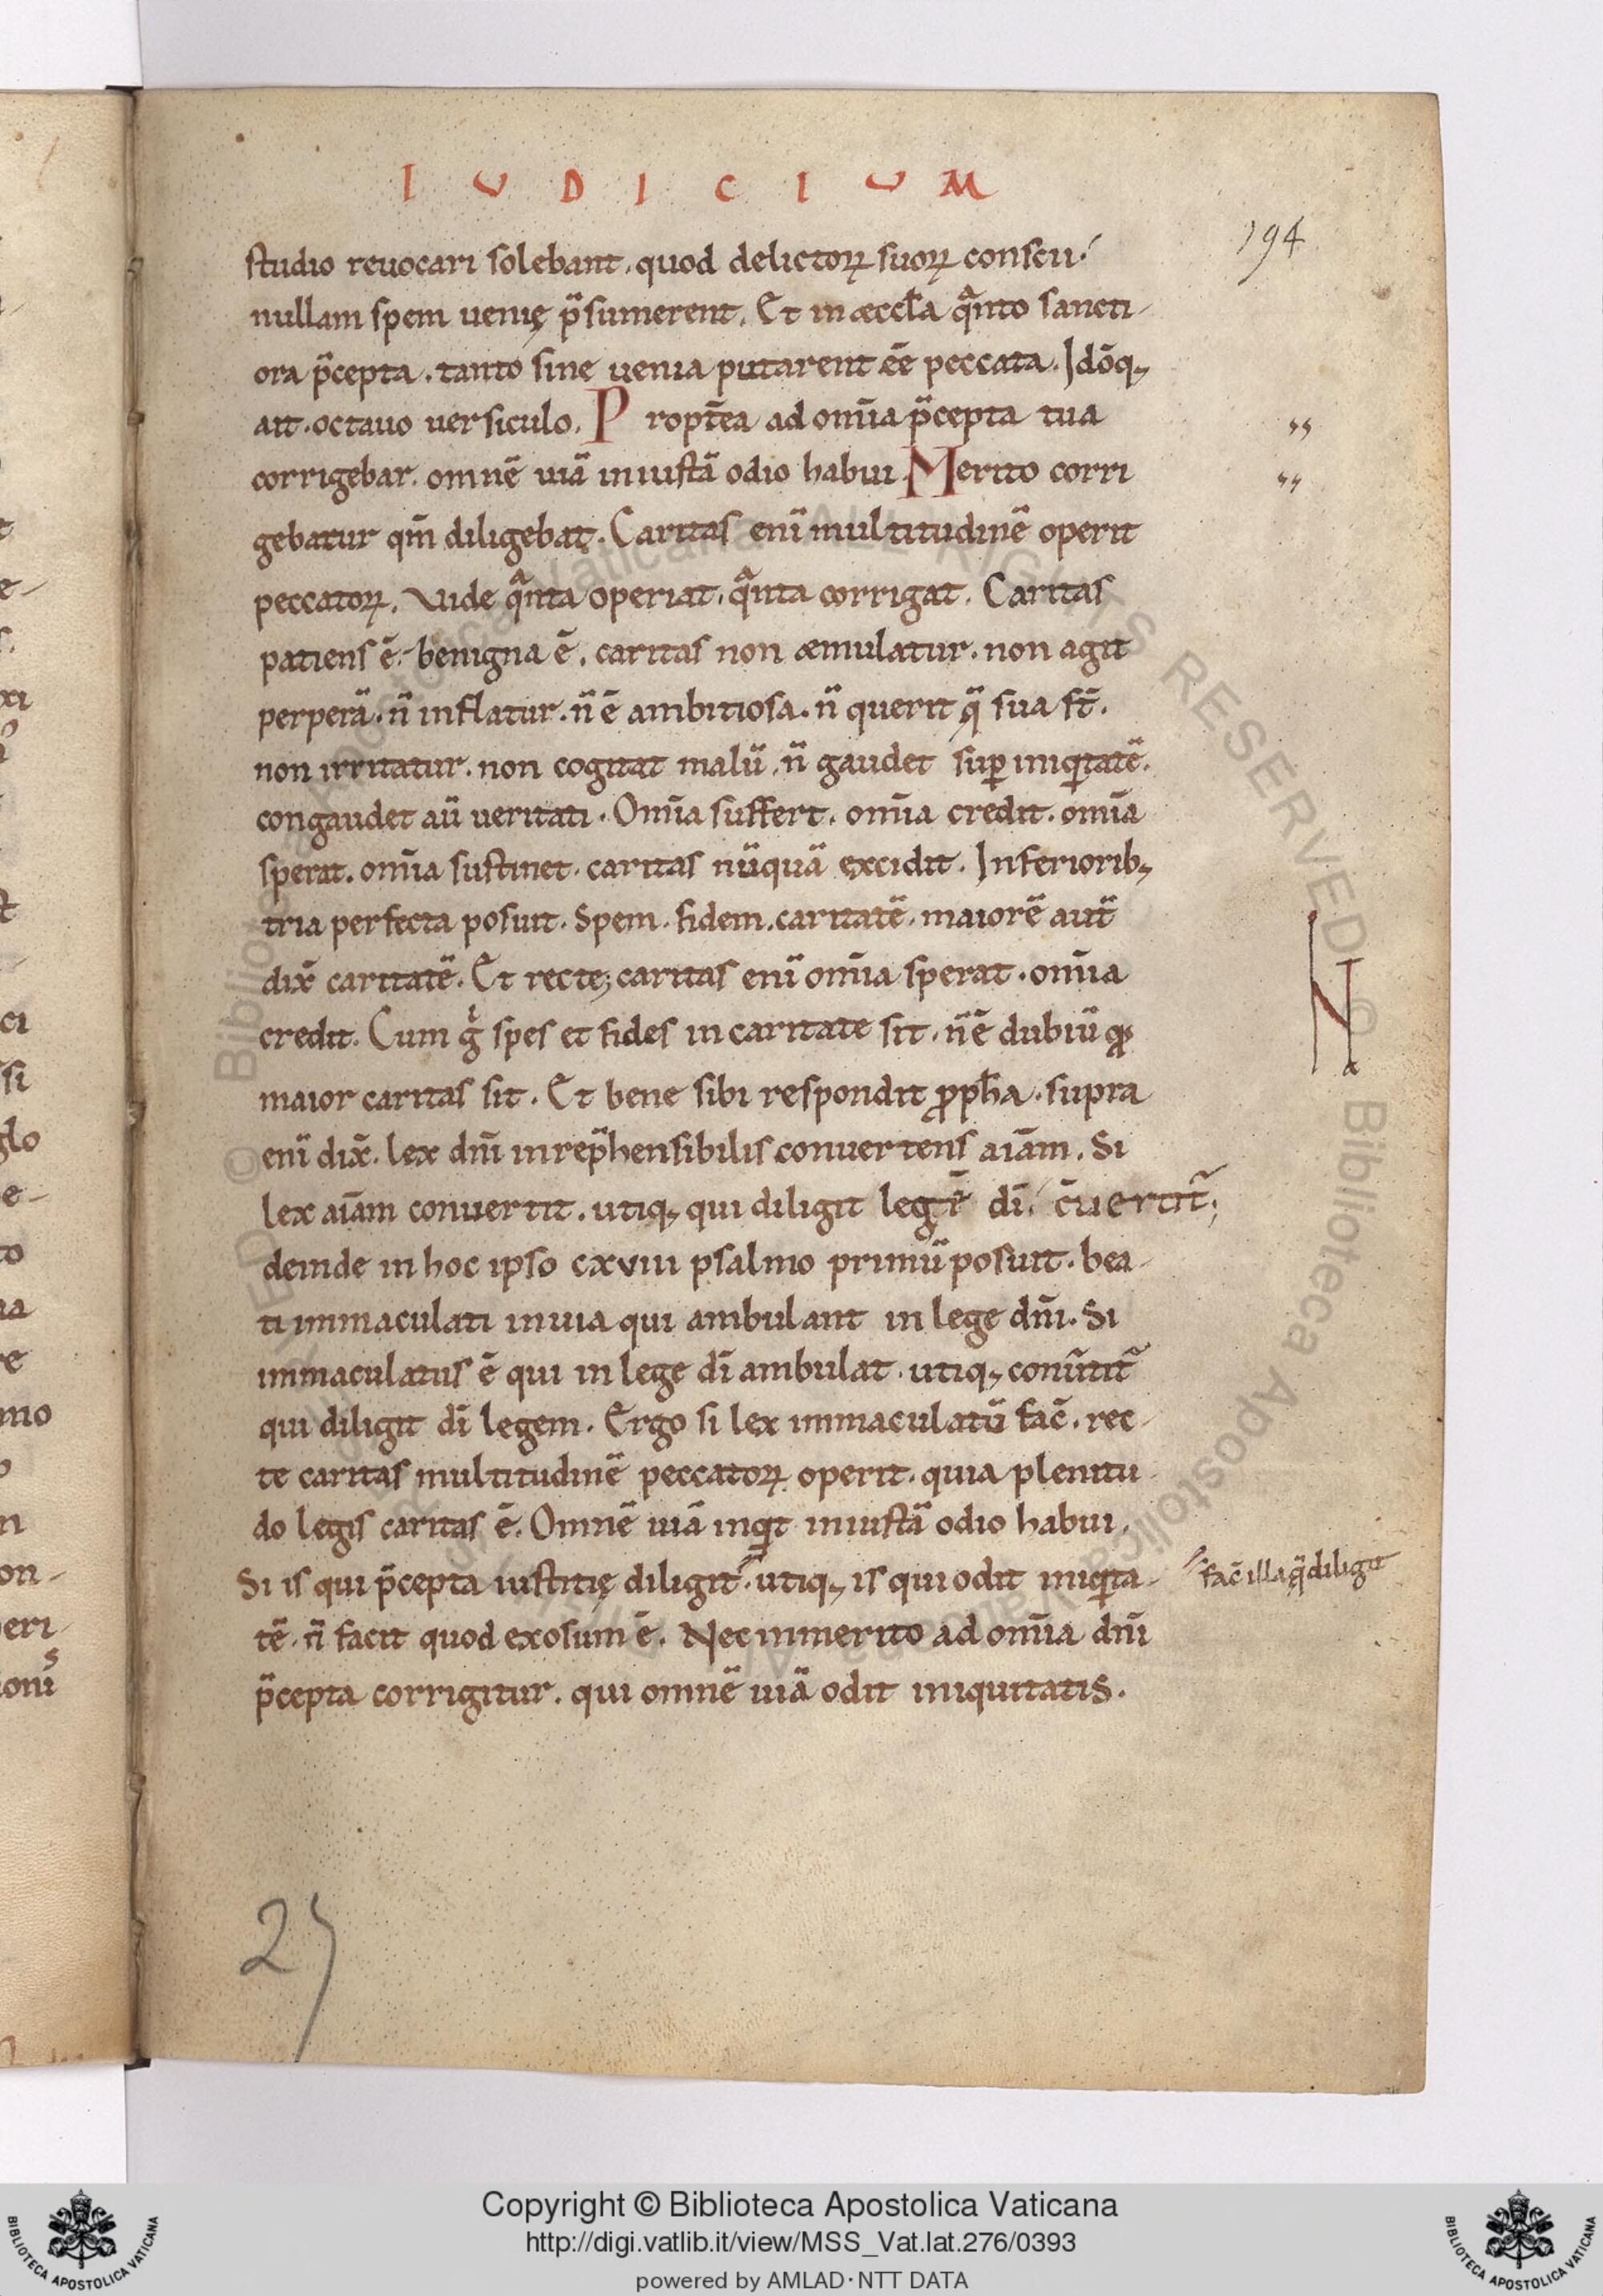 I U D I C I U M
194
studio reuocari solebant. quod delictoꝝ suoꝝ conscii.
nullam spem uenię p̄sumerent. Et in æccl̄a qᵃnto sancti-
ora p̄cepta. tanto sine uenia putarent ēē peccata. Idōq;
ait. octauo uersiculo. Propt̄ea ad om̄ia p̄cepta tua
corrigebar. omnē uiā iniustā odio habui. Merito corri
gebatur qm̄ diligebat. Caritas enī multitudinē operit
peccatoꝝ. Vide qᵃnta operiat. qᵃnta corrigat. Caritas
patiens ē. benigna ē. caritas non æmulatur. non agit
perperā. n̄ inflatur. n̄ ē ambitiosa. n̄ querit q̄ sua st̄.
non irritatur. non cogitat malū. n̄ gaudet suꝑ iniqⁱtatē.
congaudet aū ueritati. Om̄ia suffert. om̄ia credit. om̄ia
sperat. om̄ia sustinet. caritas nūquā excidit. Inferiorib;
tria perfecta posuit. Spem. fidem. caritatē. maiorē autē
dix̄ caritatē. Et recte; caritas enī om̄ia sperat. om̄ia
credit. Cum gͦ spes et fides in caritate sit. n̄ ē dubiū qđ
maior caritas sit. Et bene sibi respondit ꝓph̄a. supra
enī dix̄. lex dn̄i inrep̄hensibilis conuertens aīam. Si
lex aīam conuertit. utiq; qui diligit legē dī. c̄uertit᷑;
deinde in hoc ipso cxviii psalmo primū posuit. bea-
ti immaculati in uia qui ambulant in lege dn̄i. Si
immaculatus ē qui in lege dī ambulat. utiq; conūtit᷑
qui diligit dī legem. Ergo si lex immaculatū fac̄. rec-
te caritas multitudinē peccatoꝝ operit. quia plenitu-
do legis caritas ē. Omnē uiā inqⁱt iniustā odio habui.
Si is qui p̄cepta iustitię diligit. utiq; is qui odit iniqⁱta-
fac̄ illa q̄ diligit
tē. n̄ facit quod exosum ē. Nec inmerito ad om̄ia dn̄i
p̄cepta corrigitur. qui omnē uiā odit iniquitatis.
27
Copyright © Biblioteca Apostolica Vaticana
http://digi.vatlib.it/view/MSS_Vat.lat.276/0393
powered by AMLAD·NTT DATA
BIBLIOTECA APOSTOLICA VATICANA
BIBLIOTECA APOSTOLICA VATICANA